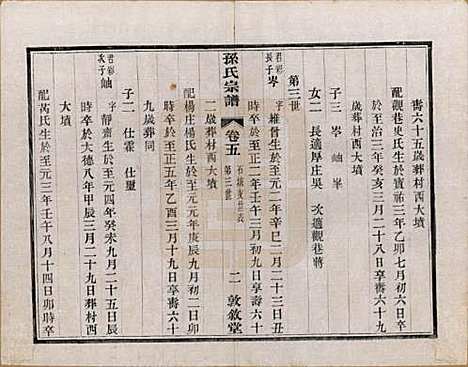 壽六十五歲葬村西大墳
配觀巷史氏生於寶祐三年乙卯七月初六日卒
於至治三年癸亥三月二十八日享壽六十
子三 岑 岫 峯
女二 長適厚庄吳 次適觀巷蔣
第三世
君彩長子 岑 字維晉生於至元二年辛巳二月二十三日丑
時卒於至正二年壬午三月初九日享壽六十
二歲葬村西大墳
配楊庄楊氏生於至元元年庚辰九月初二日卯
時卒於至正五年乙酉三月十九日享壽六十
九歲葬同
子二 仕霖 仕璽
君彩次子 岫 字靜齋生於至元四年癸未九月二十五日辰
時卒於大德八年甲辰三月二十九日葬村西
大墳
配芮氏生於至元三年壬午八月十四日卯時卒
孫氏宗譜
卷五
第三世
二
敦敘堂